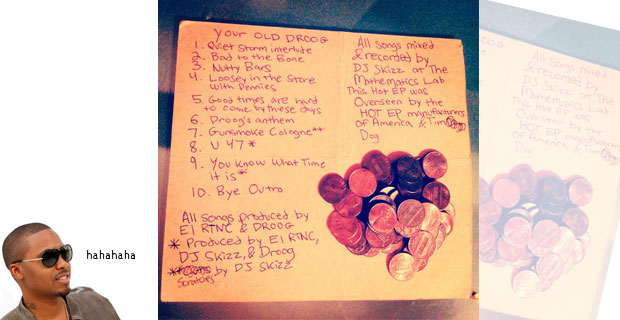 your OLD DROOG
1. Quiet Storm interlude
2. Bad to the Bone
3. Nutty Bars
4. Loosey in the Store
with Pennies
5. Good times are hard
to come by these days
6. Droog's anthem
7. Gunsmoke Cologne**
8. U 47*
9. You Know What Time
it is*
10. Bye Outro
All songs produced by
El RTNC & DROOG
* Produced by El RTNC,
DJ Skizz, & Droog
** by DJ Skizz
Scratches
All songs mixed
& recorded by
DJ Skizz at The
Mathematics Lab
This Hot EP was
Overseen by the
HOT EP manufacturers
of America & Tim
Dog
hahahaha
All songs mixed
& recorded by
DJ Skizz at The
Mathematics Lab
This Hot EP was
Overseen by the
HOT EP manufacturers
of America & Tim
Dog